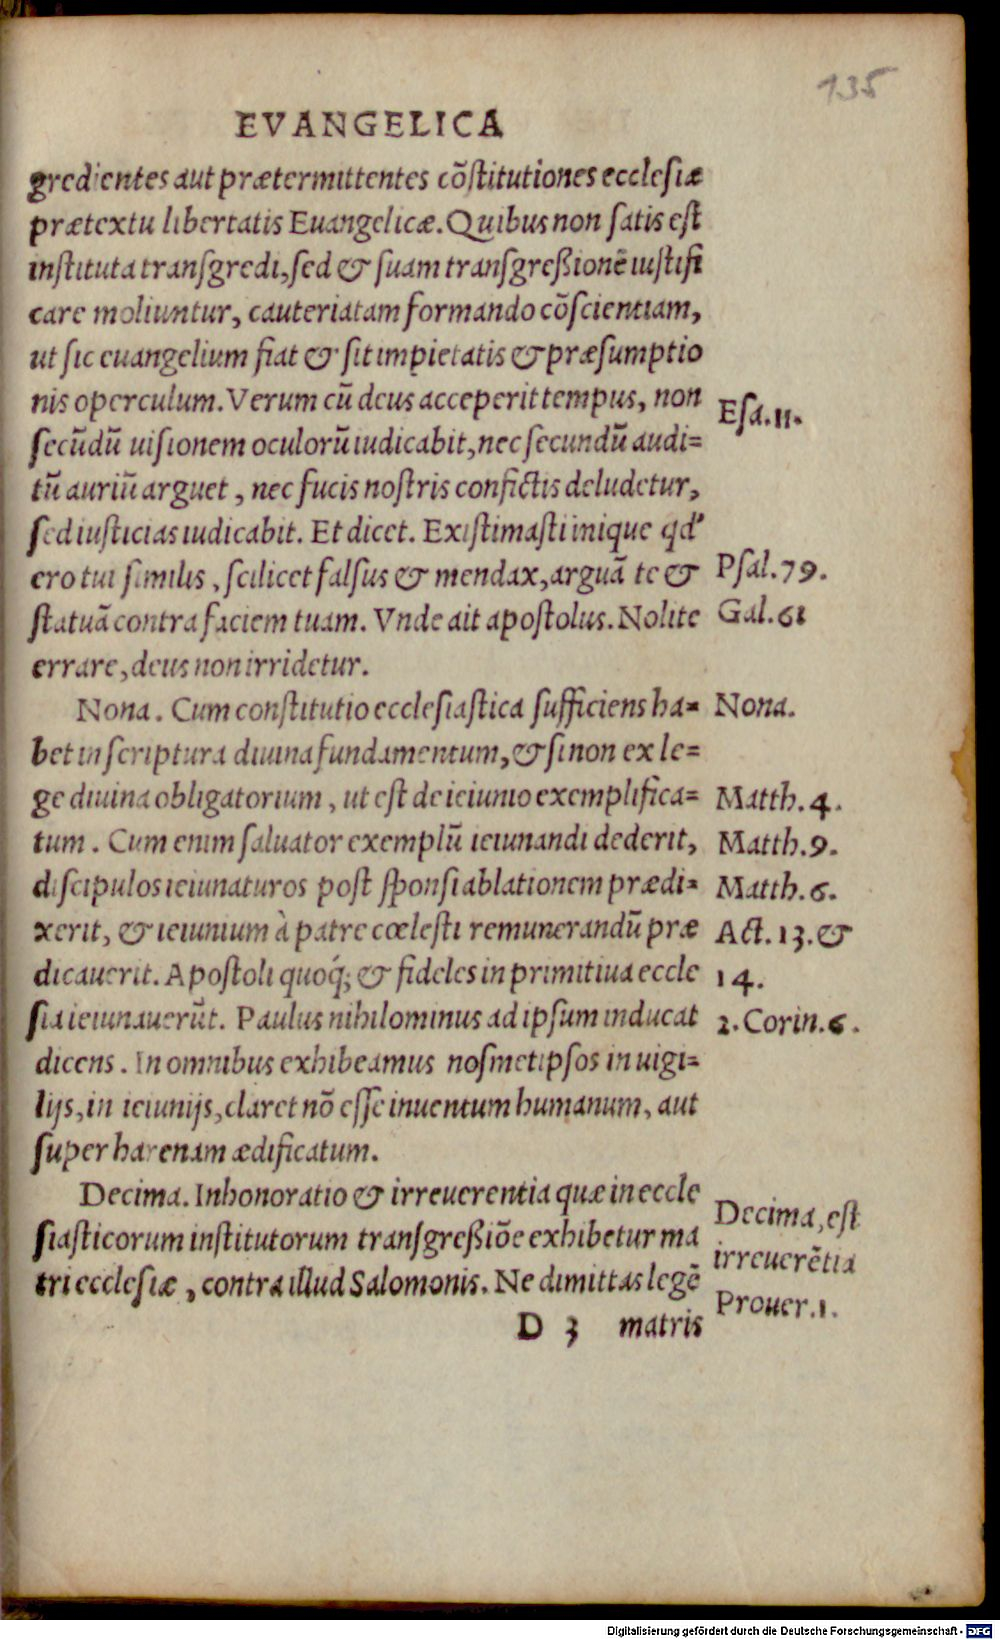 135
EVANGELICA
gredientes aut prætermittentes cōſtitutiones eccleſiæ
prætextu libertatis Euangelicæ. Quibus non ſatis eſt
inſtituta tranſgredi, ſed & ſuam tranſgreßionē iuſtifi
care moliuntur, cauteriatam formando cōſcientiam,
ut ſic euangelium fiat & ſit impietatis & præſumptio
nis operculum. Verum cū deus acceperit tempus, non
ſecūdū uiſionem oculorū iudicabit, nec ſecundū audi=
tū auriū arguet, nec fucis noſtris confictis deludetur,
ſed iuſticias iudicabit. Et dicet. Exiſtimaſti inique qd'
ero tui ſimilis, ſcilicet falſus & mendax, arguā te &
ſtatuā contra faciem tuam. Vnde ait apoſtolus. Nolite
errare, deus non irridetur.
Nona. Cum conſtitutio eccleſiaſtica ſufficiens ha=
bet in ſcriptura diuina fundamentum, & ſi non ex le=
ge diuina obligatorium, ut eſt de ieiunio exemplifica=
tum. Cum enim ſaluator exemplū ieiunandi dederit,
diſcipulos ieiunaturos poſt ſponſi ablationem prædi=
xerit, & ieiunium à patre cœleſti remunerandū præ
dicauerit. Apoſtoli quoq́; & fideles in primitiua eccle
ſia ieiunauerūt. Paulus nihilominus ad ipſum inducat
dicens. In omnibus exhibeamus noſmetipſos in uigi=
lijs, in ieiunijs, claret nō eſſe inuentum humanum, aut
ſuper harenam ædificatum.
Decima. Inhonoratio & irreuerentia quæ in eccle
ſiaſticorum inſtitutorum tranſgreßiōe exhibetur ma
tri eccleſiæ, contra illud Salomonis. Ne dimittas legē
D 3 matris
Eſa. 11.
Pſal. 79.
Gal. 61
Nona.
Matth. 4.
Matth. 9.
Matth. 6.
Act. 13. &
14.
2. Corin. 6.
Decima, eſt
irreuerētia
Prouer. 1.
Digitalisierung gefördert durch die Deutsche Forschungsgemeinschaft - DFG